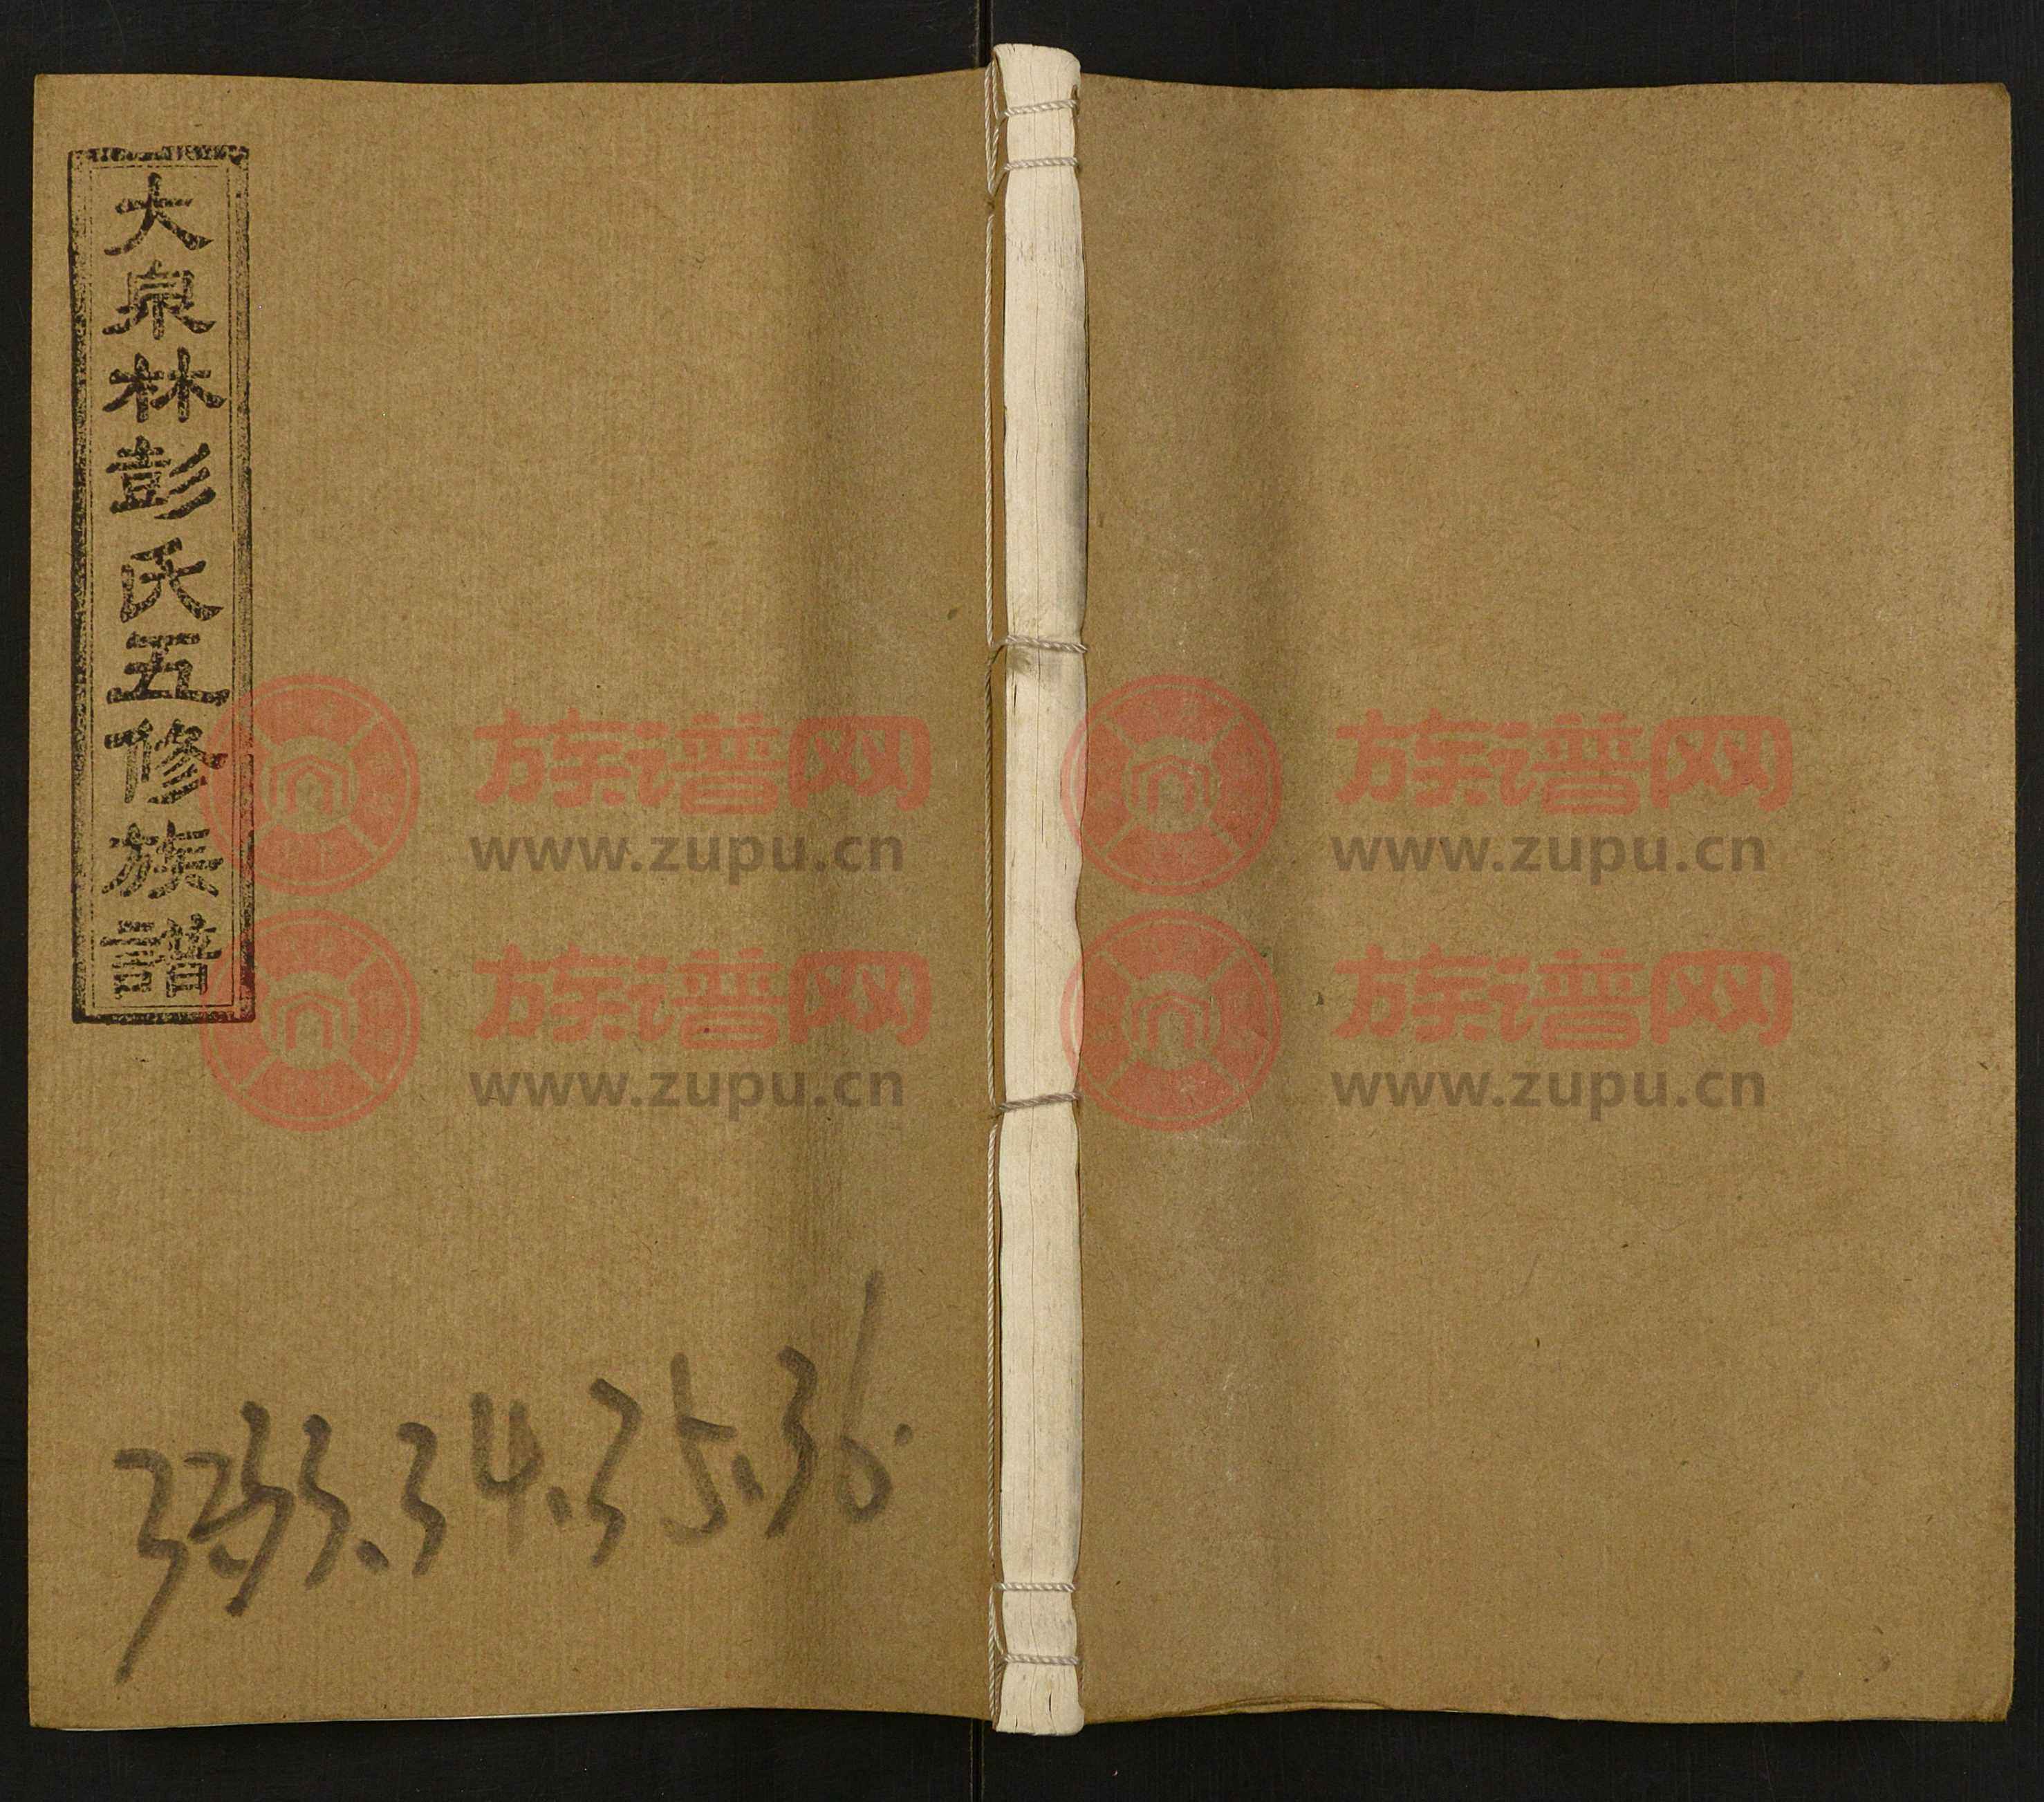 大泉林彭氏五修族譜
族谱网
www.zupu.cn
族谱网
www.zupu.cn
族谱网
www.zupu.cn
族谱网
www.zupu.cn
32.33.34.35.36.